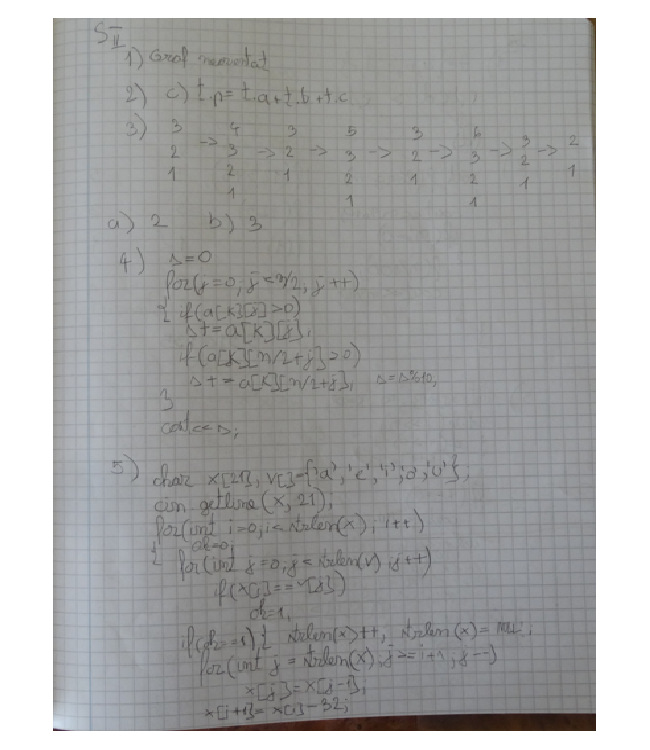 S II
1) Graf neorientat
2) c) t.p = t.a + t.b + t.c
3) 3 4 3 5 3 6 3 2
2 -> 3 -> 2 -> 3 -> 2 -> 3 -> 2 -> 1
1 2 1 2 1 2 1
1 1 1
a) 2 b) 3
4) s=0
for(j=0; j<n/2; j++)
{ if(a[k][j]>0)
s+=a[k][j];
if(a[k][n/2+j]>0)
s+=a[k][n/2+j]; s=s%10;
}
cout<<s;
5) char x[21], v[]={'a','e','i','o','u'};
cin.getline(x,21);
for(int i=0;i<strlen(x); i++)
{ ok=0;
for(int j=0;j<strlen(v); j++)
if(x[i]==v[j])
ok=1;
if(ok==1) { strlen(x)++; strlen(x)=
for(int j=strlen(x);j>=i+1;j--)
x[j]=x[j-1];
x[i+1]=x[i]-32;